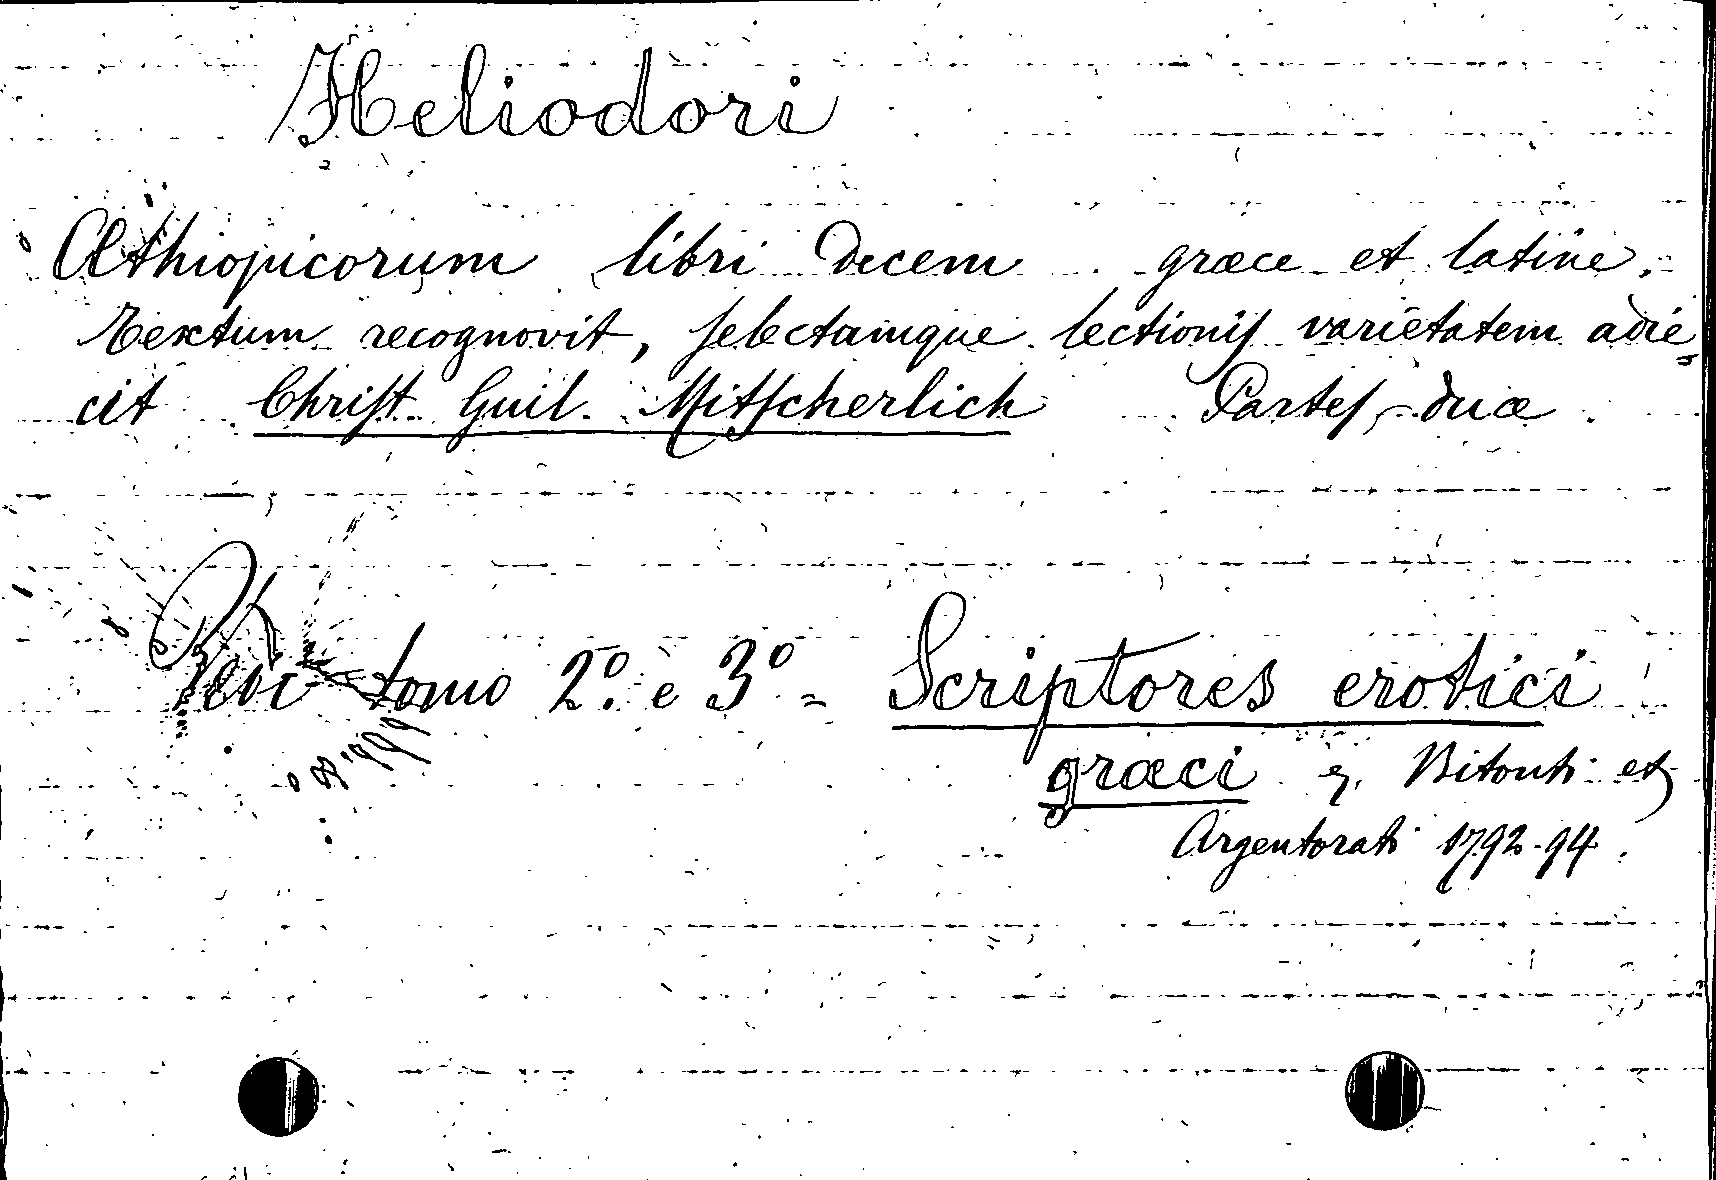 Heliodori
Æthiopicorum libri decem græce et latine.
Textum recognovit, selectamque lectionis varietatem adie=
cit Christ. Guil. Mitscherlich Partes duæ
tomo 2º. e 3º =  Scriptores erotici
græci Biponti et
Argentorati 1792-94.